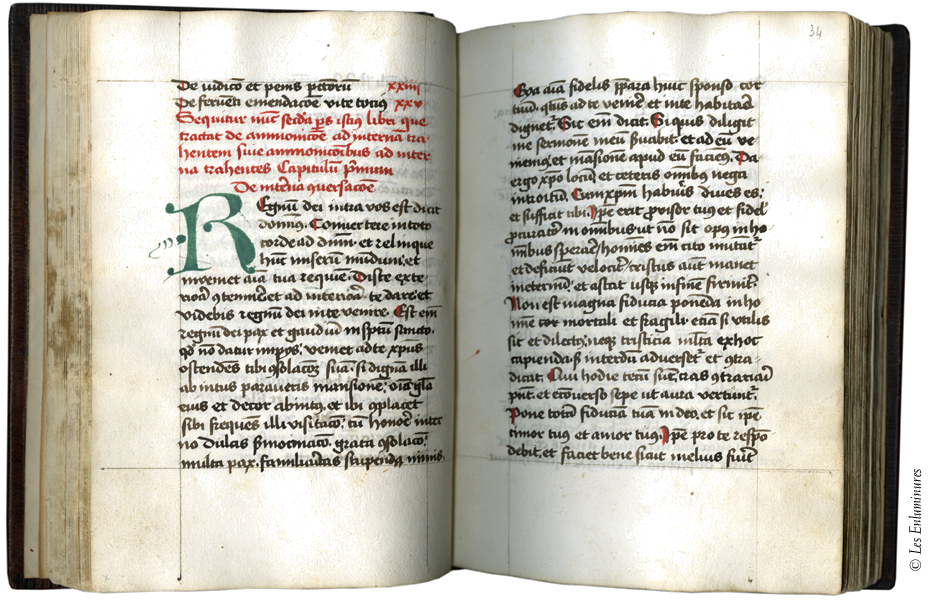 De iudico et penis pctorū xxiiij
De feruēti emendacōe vite tocius xxv
Sequitur nūc secūda ps istius libri que
tractat de ammonicōe ad internā tra-
hentem siue ammonicōibus ad inter
na trahentes Capitulū primum
De interna ɔuersacōe
Regnū dei intra vos est dicit
domin9. Conuertere in toto
corde ad dnm̄ et relinque
hūc miserū mundum et
inueniet aīa tua requiē. Disce exte-
riora ɔtennere et ad interiora te dare et
videbis regnū dei in te venire. Est em̄
regnū dei pax et gaudiū in spū sancto.
qd nō datur impijs. veniet ad te xpūs
ostendēs tibi ɔsolacōez suā. si dignā illi
ab intus paraueris mansionē. oīs glā
eius et decor ab intus. et ibi ɔplacet
sibi frequēs illi visitacō. cū hoīe inter
no dulcis smocinacō. grata ɔsolacō.
multa pax. familiaritas stupenda nimis.
34
Eya aīa fidelis ppara huic sponso cor
tuū. qtus ad te venire et in te habitare
dignetr. Sic em̄ dicit. Si quis diligit
me sermonē meū suabit. et ad eū ve
niemus et māsionē apud eū faciemus. Da
ergo xpo locū. et ceteris omibus nega
introitū. Cum xpm̄ habueris diues es.
et sufficit tibi. Ipe erit prouisor tuus et fidel
pcurator in omibus. ut nō sit opus in ho
minibus sperare. homies em̄ cito mutātr
et deficiunt velociter. xpistus aūt manet
in eternū. et astat usqz in finē firmiter.
Non est magna fiducia ponēda in ho
mine mortali et fragili eciā si utilis
sit et dilectus. neqz tristicia multa ex hoc
capienda si interdū adversetr et ɔtra-
dicat. Qui hodie tecū sūt. cras ɔtrariari
pnt. et ecōuerso sepe ut aura vertūntr.
Pone totā fiduciā tuā in deo. et sit ipe
timor tuus et amor tuus. Ipe pro te respō
debit. et faciet bene sicut melius fuerit
© Les Enluminures